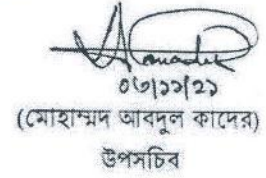 ০৬/১১/২১
(মোহাম্মদ আবদুল কাদের)
উপসচিব